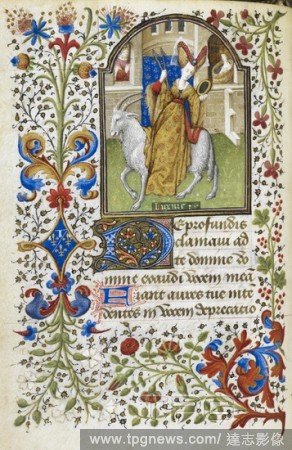 luxure
De profundis
clamaui ad
te domine do
mine exaudi vocem meã
Fiant aures tue inte
dentes in vocem deprecatio
www.tpgnews.com/達志影像